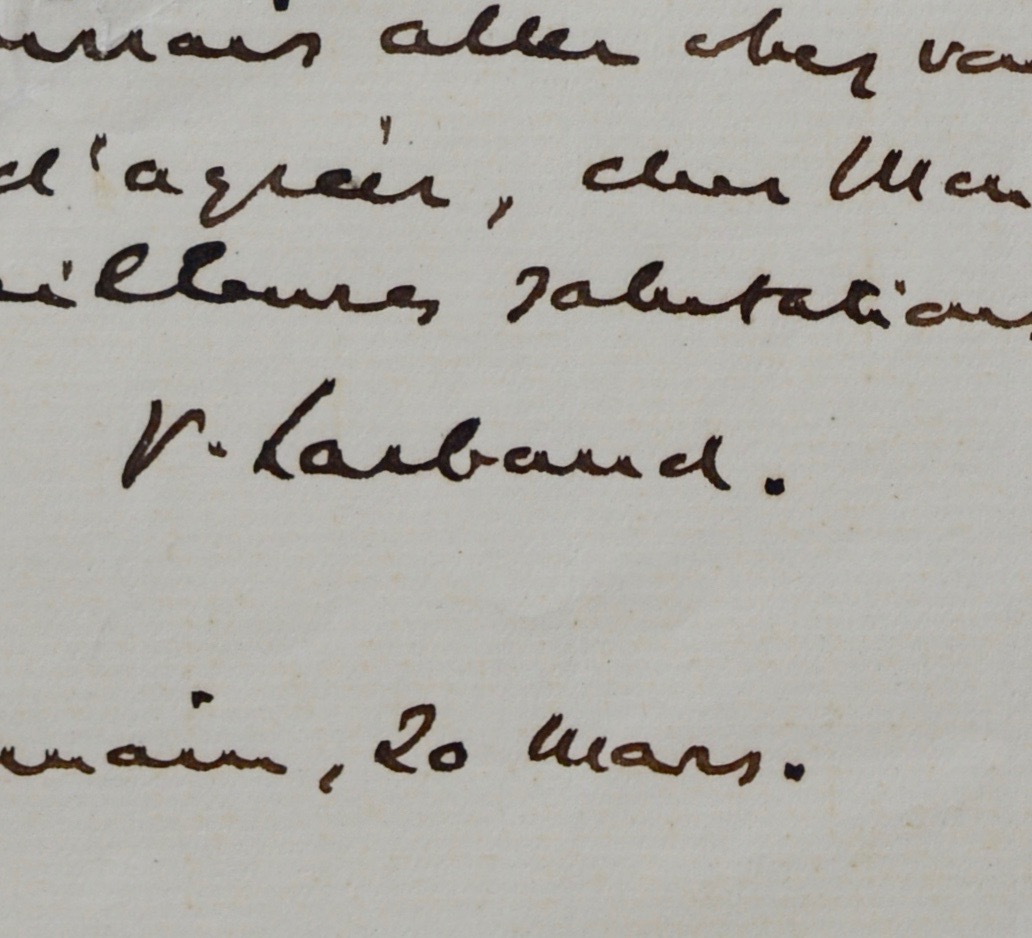 urrais aller chez vou
d'agréer, cher Mon
eilleures salutations
V. Larbaud.
main, 20 Mars.